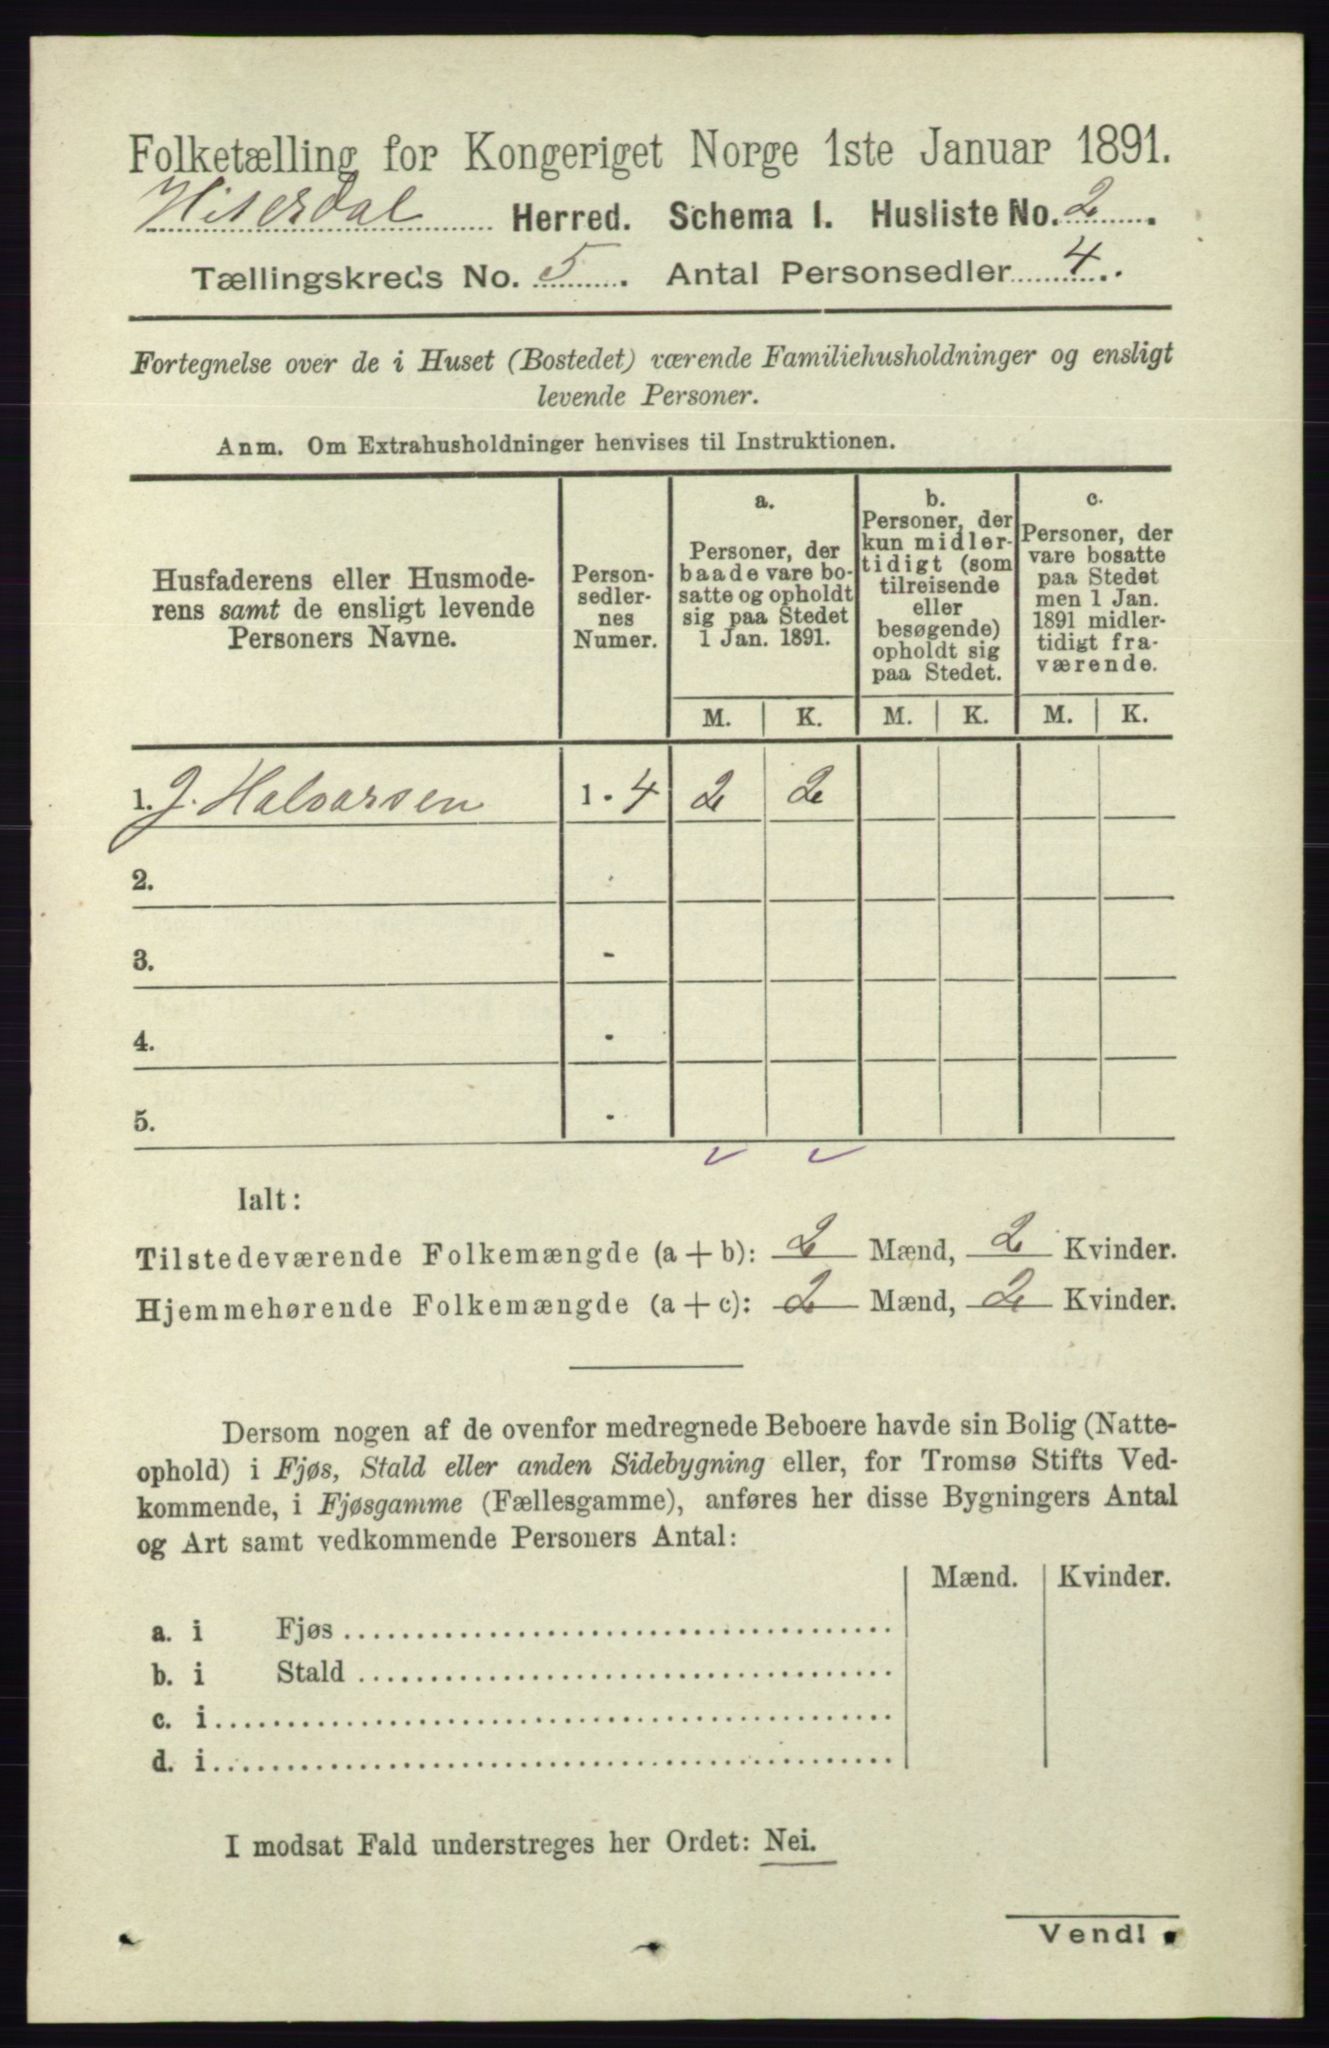 Folketælling for Kongeriget Norge 1ste Januar 1891.
Hiterdal Herred. Schema I. Husliste No. 2.
Tællingskreds No. 5. Antal Personsedler 4.
Fortegnelse over de i Huset (Bostedet) værende Familiehusholdninger og ensligt
levende Personer.
Anm. Om Extrahusholdninger henvises til Instruktionen.
Husfaderens eller Husmode-
rens samt de ensligt levende
Personers Navne.
Person-
sedler-
nes
Numer.
a.
Personer, der
baade vare bo-
satte og opholdt
sig paa Stedet
1 Jan. 1891.
b.
Personer, der
kun midler-
tidigt (som
tilreisende
eller
besøgende)
opholdt sig
paa Stedet.
c.
Personer, der
vare bosatte
paa Stedet
men 1 Jan.
1891 midler-
tidigt fra-
værende.
M. K. M. K. M. K.
1. J. Halvorsen 1 - 4 2 2
2. -
3. -
4. -
5. -
Ialt:
Tilstedeværende Folkemængde (a + b): 2 Mænd, 2 Kvinder.
Hjemmehørende Folkemængde (a + c): 2 Mænd, 2 Kvinder.
Dersom nogen af de ovenfor medregnede Beboere havde sin Bolig (Natte-
ophold) i Fjøs, Stald eller anden Sidebygning eller, for Tromsø Stifts Ved-
kommende, i Fjøsgamme (Fællesgamme), anføres her disse Bygningers Antal
og Art samt vedkommende Personers Antal:
Mænd. Kvinder.
a. i Fjøs
b. i Stald
c. i
d. i
I modsat Fald understreges her Ordet: Nei.
Vend!